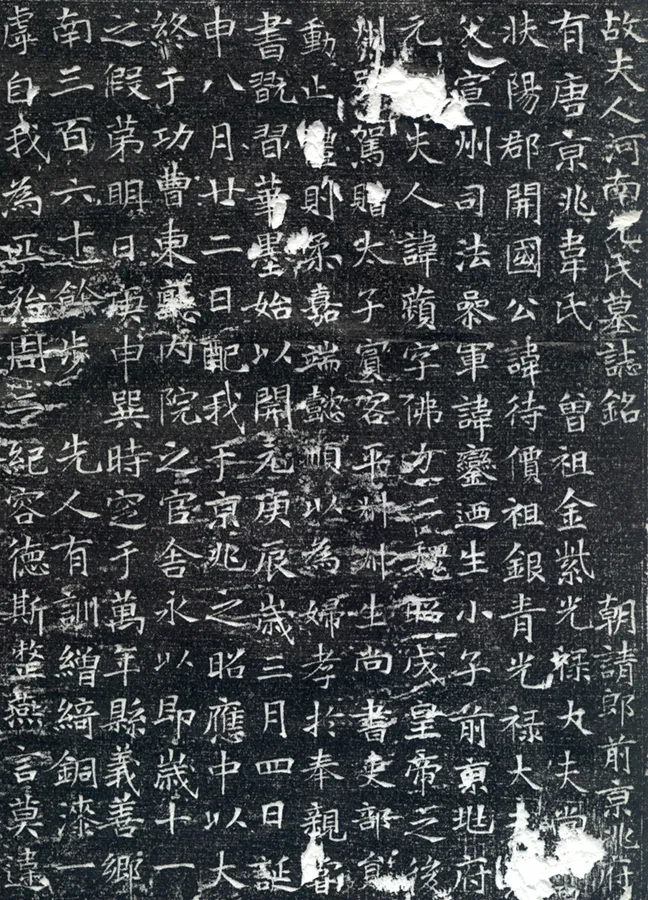 故夫人河南元氏墓誌銘　朝請郎前京兆府
有唐京兆韋氏　曾祖金紫光祿大夫尚
扶陽郡開國公諱待價祖銀青光祿大
父宣州司法叅軍諱鑾迺生小子前京兆府
元夫人諱蘋字佛力二魏昭成皇帝之後
州駕贈太子賓客平生尚書吏部
動止則柔嘉端懿順以為婦孝扵奉親
書戲習華墨始以開元庚辰歲三月四日誕
申八月廿二日配我于京兆之昭應中以大
終于功曹東廳內院之官舍永以即歲十一
之假第明日庚申巽時窆于萬年縣義善鄉
南三百六十餘步　先人有訓繒綺銅漆一
虛自我為匹殆周二紀容德斯整燕言莫違